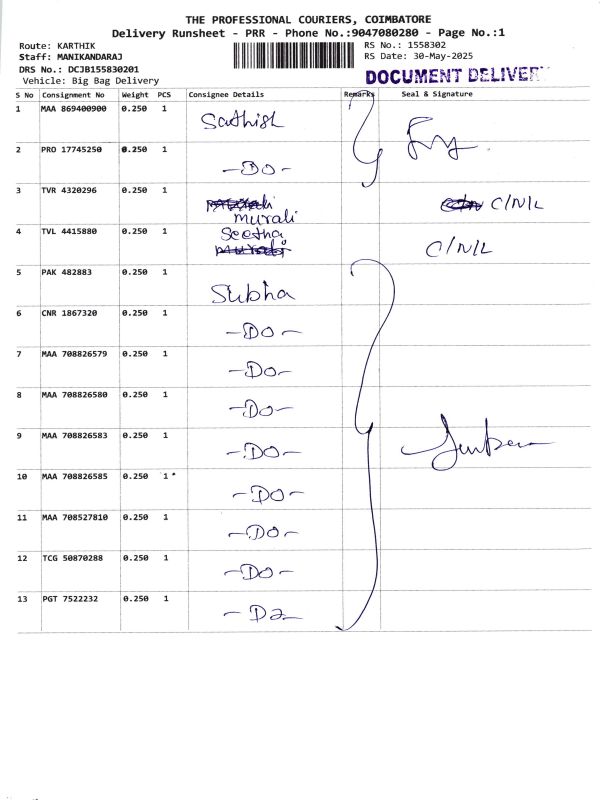 THE PROFESSIONAL COURIERS, COIMBATORE
Delivery Runsheet - PRR - Phone No.:9047080280 - Page No.:1
Route: KARTHIK
Staff: MANIKANDARAJ
DRS No.: DCJB155830201
Vehicle: Big Bag Delivery
RS No.: 1558302
RS Date: 30-May-2025
DOCUMENT DELIVER
S No Consignment No Weight PCS Consignee Details Remarks Seal & Signature
1 MAA 869400900 0.250 1 Sathish
2 PRO 17745250 0.250 1 -DO-
3 TVR 4320296 0.250 1 murali C/N/L
4 TVL 4415880 0.250 1 Seetha C/N/L
5 PAK 482883 0.250 1 Subha
6 CNR 1867320 0.250 1 -DO-
7 MAA 708826579 0.250 1 -DO-
8 MAA 708826580 0.250 1 -DO-
9 MAA 708826583 0.250 1 -DO-
10 MAA 708826585 0.250 1 -DO-
11 MAA 708527810 0.250 1 -DO-
12 TCG 50870288 0.250 1 -DO-
13 PGT 7522232 0.250 1